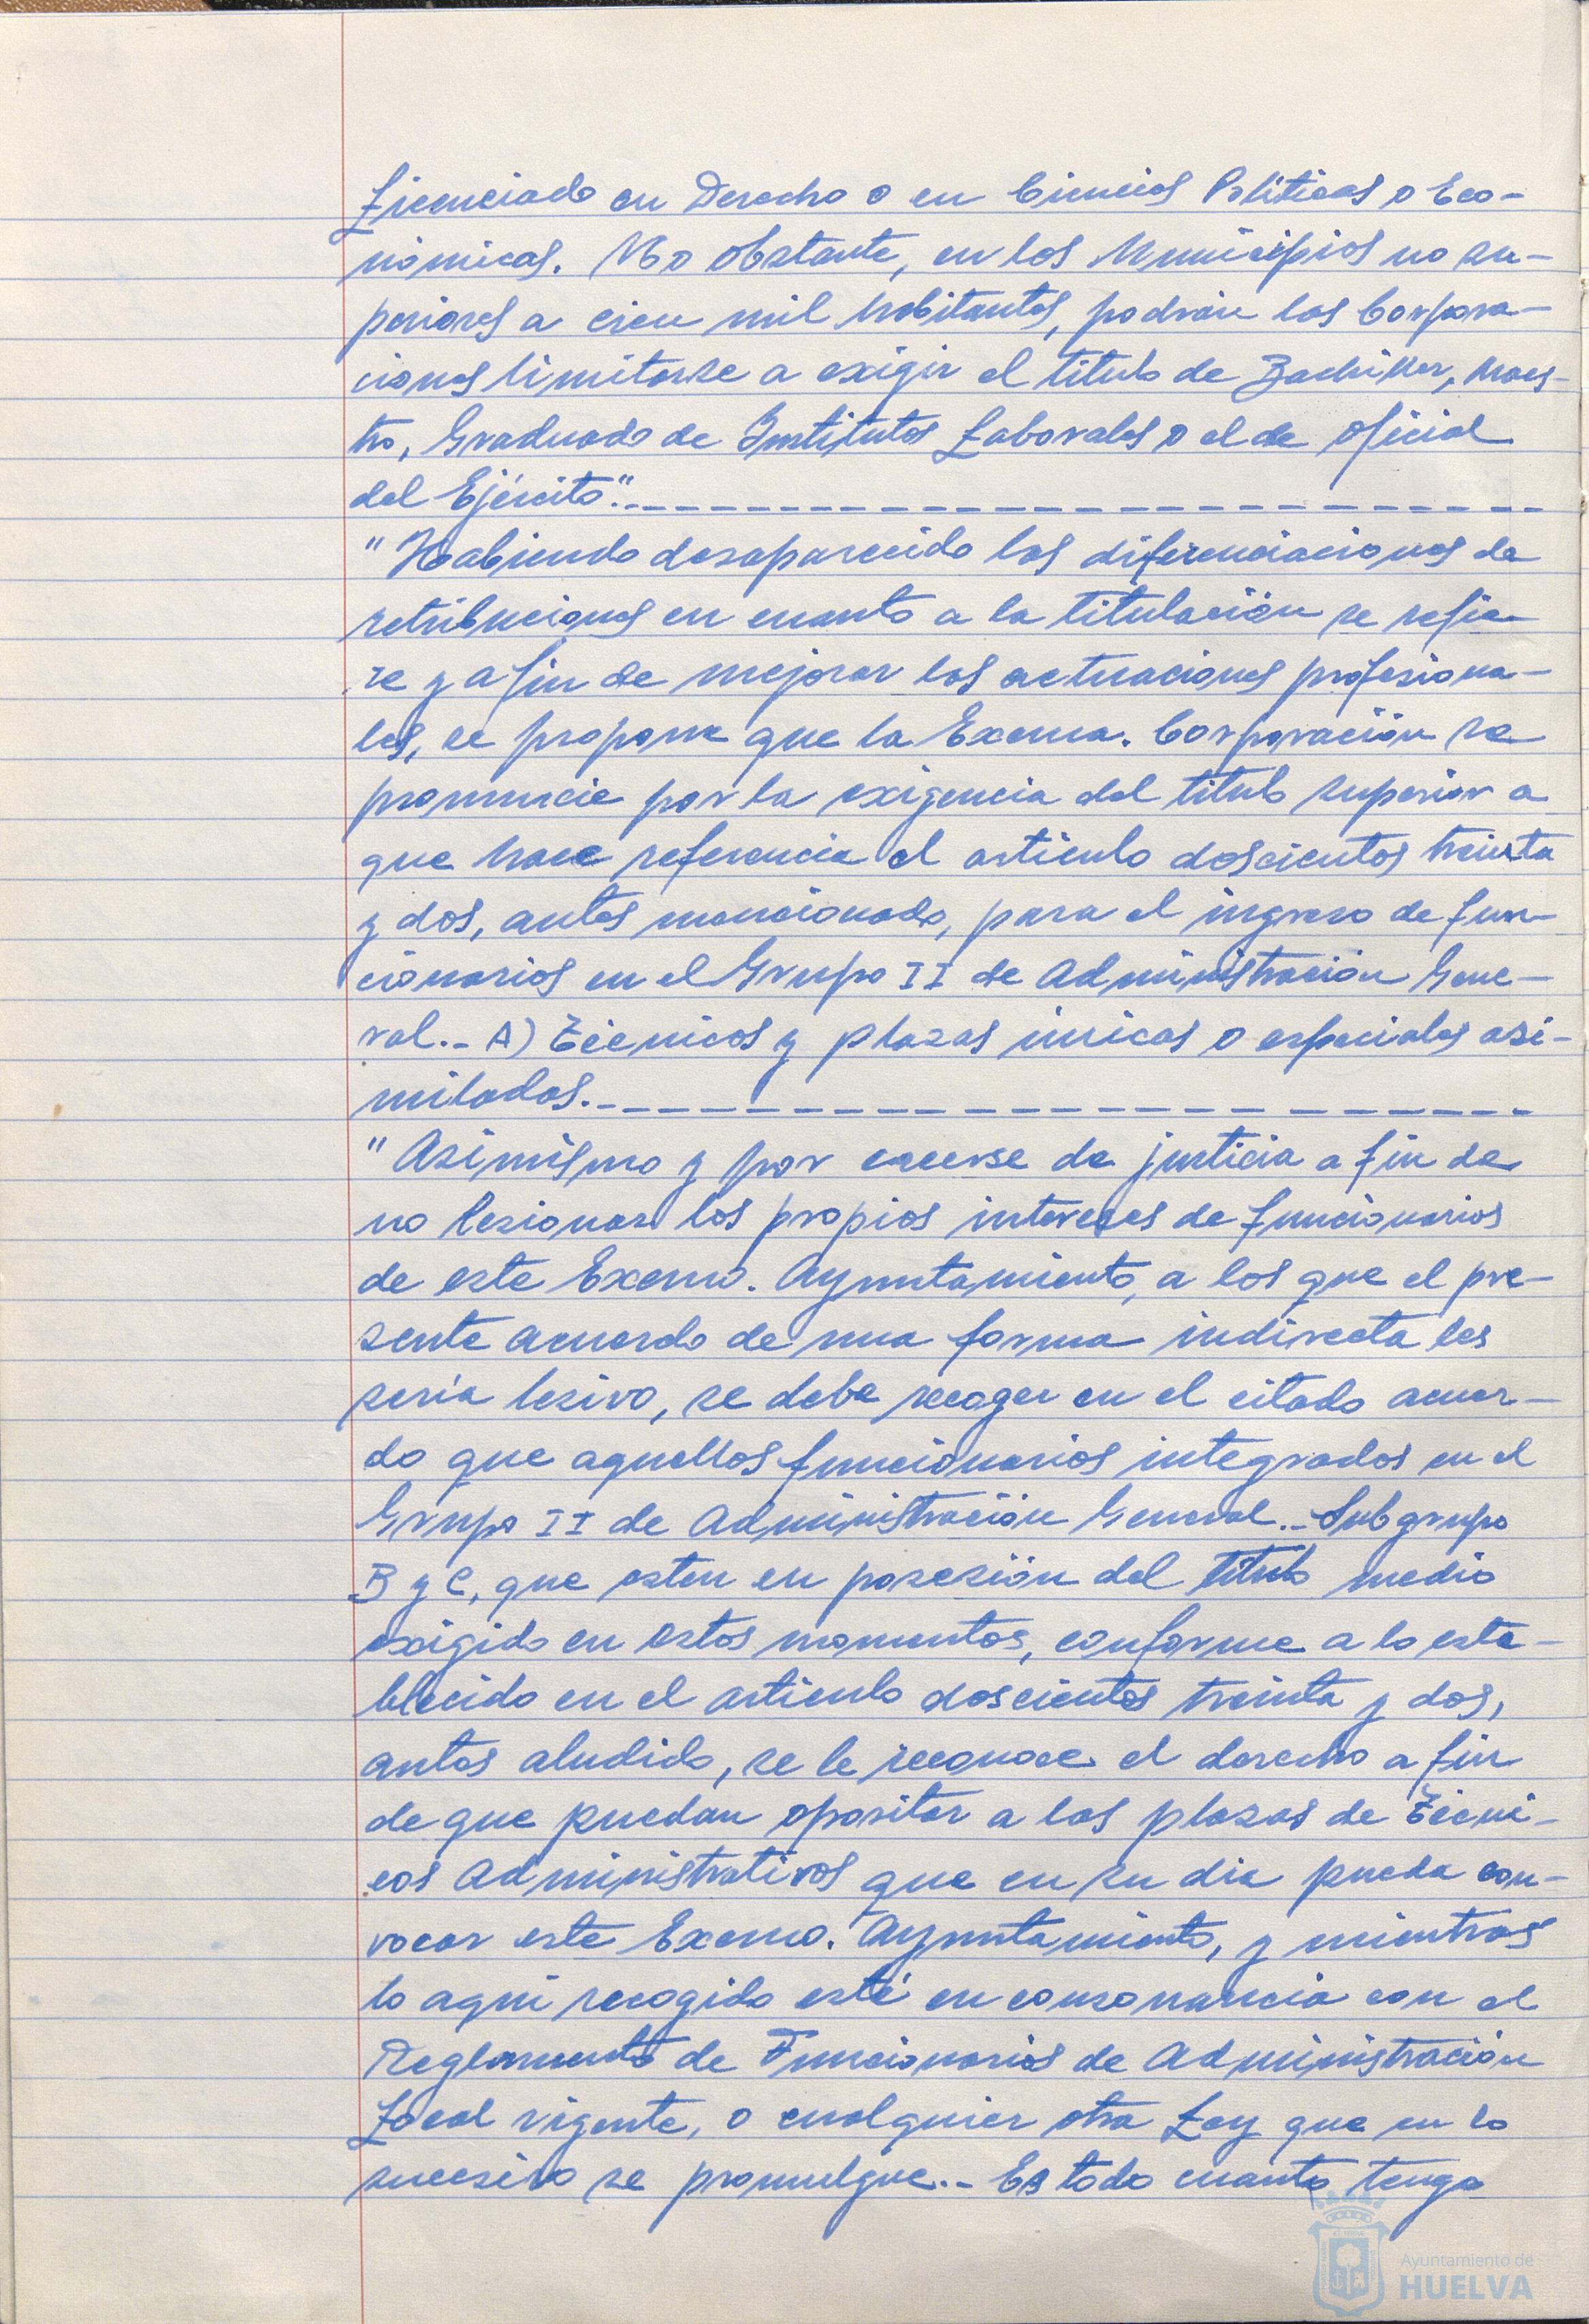 Licenciado en Derecho o en Ciencias Políticas o Eco-
nómicas. No obstante, en los Municipios no su-
periores a cien mil habitantes, podrán las Corpora-
ciones limitarse a exigir el título de Bachiller, Maes-
tro, Graduado de Institutos Laborales o el de oficial
del Ejército".-
"Habiendo desaparecido las diferenciaciones de
retribuciones en cuanto a la titulación se refie-
re y a fin de mejorar las actuaciones profesiona-
les, se propone que la Excma. Corporación se
pronuncie por la exigencia del título superior a
que hace referencia el artículo doscientos treinta
y dos, antes mencionado, para el ingreso de fun-
cionarios en el Grupo II de Administración Gene-
ral.- A) Técnicos y plazas únicas o especiales asi-
miladas.-
"Asimismo y por creerse de justicia a fin de
no lesionar los propios intereses de funcionarios
de este Excmo. Ayuntamiento, a los que el pre-
sente acuerdo de una forma indirecta les
sería lesivo, se debe recoger en el citado acuer-
do que aquellos funcionarios integrados en el
Grupo II de Administración General.- Subgrupo
B y C, que esten en posesión del título medio
exigido en estos momentos, conforme a lo esta-
blecido en el artículo doscientos treinta y dos,
antes aludido, se le reconoce el derecho a fin
de que puedan opositar a las plazas de Técni-
cos Administrativos que en su día pueda con-
vocar este Excmo. Ayuntamiento, y mientras
lo aquí recogido esté en consonancia con el
Reglamento de Funcionarios de Administración
Local vigente, o cualquier otra Ley que en lo
sucesivo se promulgue.- Es todo cuanto tengo
Ayuntamiento de
HUELVA